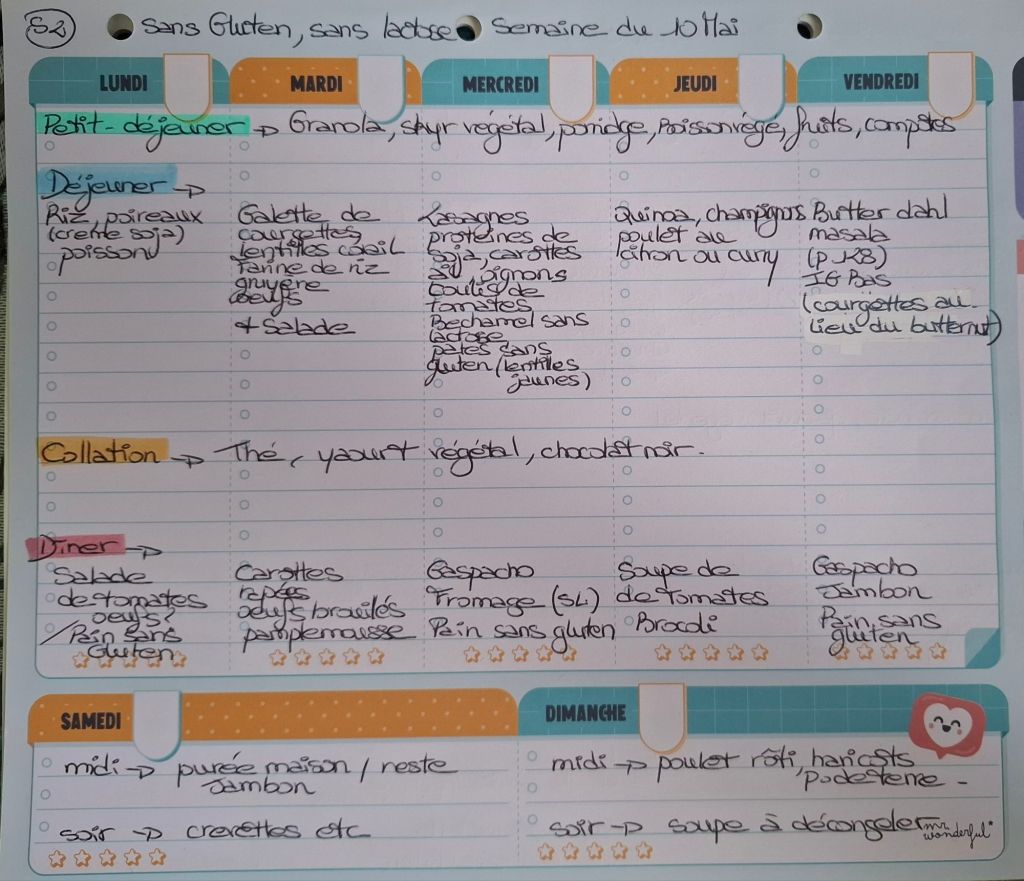 S2
Sans Gluten, sans lactose Semaine du 10 Mai
LUNDI MARDI MERCREDI JEUDI VENDREDI
Petit-déjeuner → Granola, skyr végétal, poridge, Boisson végé, fruits, compotes
Déjeuner →
Riz, poireaux
(creme soja)
poisson
Galette de
courgettes
lentilles corail
Farine de riz
gruyère
oeufs
+ Salade
Lasagnes
protéines de
soja, carottes
ail, oignons
Coulis de
tomates
Bechamel sans
lactose
pates sans
gluten (lentilles
jaunes)
Quinoa, champignons
poulet au
citron ou curry
Butter dahl
masala
(p 128)
IG Bas
(courgettes au
lieu du butternut)
Collation → Thé, yaourt végétal, chocolat noir.
Diner →
Salade
de tomates
oeufs?
/Pain sans
Gluten
Carottes
rapées
oeufs brouillés
pamplemousse
Gaspacho
Fromage (SL)
Pain sans gluten
Soupe de
de Tomates
Brocoli
Gaspacho
Jambon
Pain sans
gluten
SAMEDI
midi → purée maison / reste
Jambon
soir → crevettes etc
DIMANCHE
midi → poulet rôti, haricots
, p de terre -
soir → soupe à décongeler
mr.
wonderful*